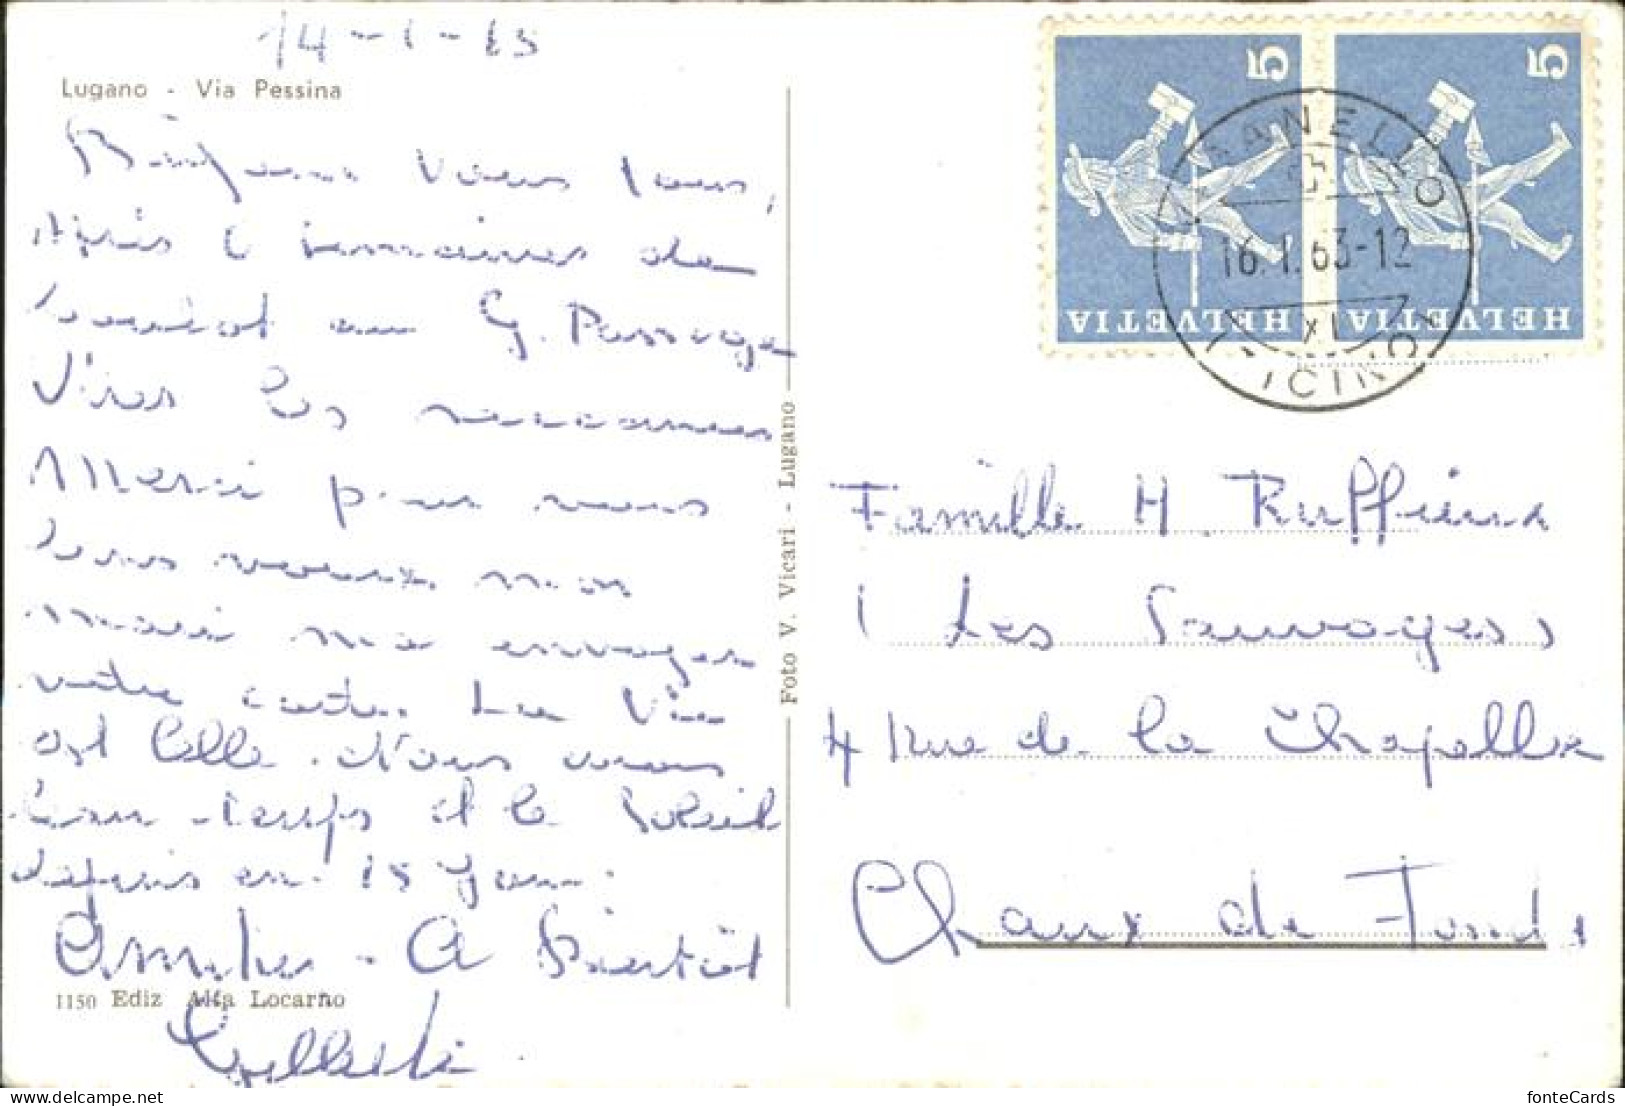 14-1-63
Lugano - Via Pessina
Bonjour vous tous,
Après 6 semaines de
au G. Passage
Vives les vacances
Merci pour vous
tous voeux mon
mari m'a envoyer
votre carte. La Vie
est belle. Nous avons
beau-temps et le soleil
depuis en 15 jour.
Amitiés - A Bientôt
1150 Ediz Alfa Locarno
Foto V. Vicari - Lugano
5 5
HELVETIA HELVETIA
16.I.63-12
XI
(TICINO)
Famille H. Ruffieux
( Les Sauvages )
4 Rue de la Chapelle
Chaux de Fonds
fonteCards